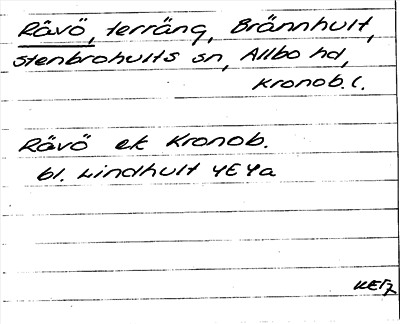 Rävö, terräng, Brännhult,
Stenbrohults sn, Allbo hd,
Kronob. l.
Rävö ek Kronob.
bl. Lindhult 4E4a